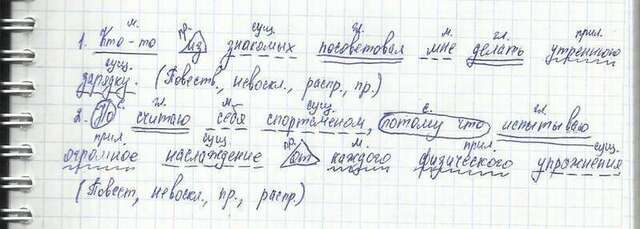 м. пр. сущ. гл. м. гл. прил.
1. Кто-то из знакомых посоветовал мне делать утреннюю
сущ.
зарядку. (Повеств., невоскл., распр., пр.)
с. гл. м. сущ. с. гл.
2. Но считаю себя спортсменом, потому что испытываю
прил. сущ. пр. м. прил. сущ.
огромное наслаждение от каждого физического упражнения
(Повест, невоскл., пр., распр.)